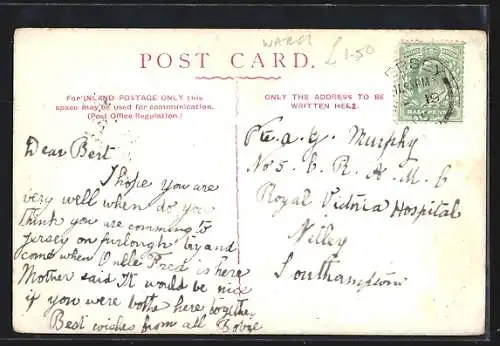 WARD
£1-50
POST CARD.
For INLAND POSTAGE ONLY this
space may be used for communication.
(Post Office Regulation.)
ONLY THE ADDRESS TO BE
WRITTEN HERE.
HALF PENNY
Dear Bert
I hope you are
very well when do you
think you are comming to
Jersey on furlongh try and
come when Oncle Fred is here
Mother said It would be nice
if you were bothe here together
Best wishes from all
Pte. A. G. Murphy
No 5. C. R. A. M. C
Royal Victoria Hospital
Nitley
Southampton